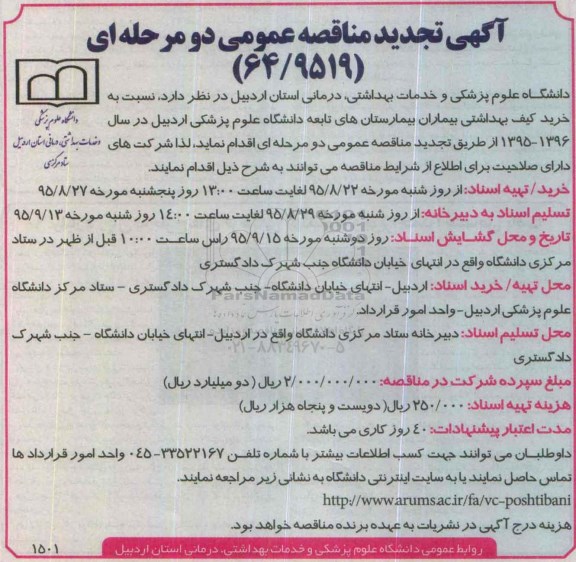 آگهی تجدید مناقصه عمومی دو مرحله ای
(۶۴/۹۵۱۹)
دانشگاه علوم پزشکی
و خدمات بهداشتی، درمانی استان اردبیل
ستاد مرکزی
دانشگاه علوم پزشکی و خدمات بهداشتی، درمانی استان اردبیل در نظر دارد، نسبت به
خرید کیف بهداشتی بیماران بیمارستان های تابعه دانشگاه علوم پزشکی اردبیل در سال
۱۳۹۶-۱۳۹۵ از طریق تجدید مناقصه عمومی دو مرحله ای اقدام نماید، لذا شرکت های
دارای صلاحیت برای اطلاع از شرایط مناقصه می توانند به شرح ذیل اقدام نمایند.
خرید / تهیه اسناد: از روز شنبه مورخه ۹۵/۸/۲۲ لغایت ساعت ۱۳:۰۰ روز پنجشنبه مورخه ۹۵/۸/۲۷
تسلیم اسناد به دبیرخانه: از روز شنبه مورخه ۹۵/۸/۲۹ لغایت ساعت ۱۴:۰۰ روز شنبه مورخه ۹۵/۹/۱۳
تاریخ و محل گشایش اسناد: روز دوشنبه مورخه ۹۵/۹/۱۵ راس ساعت ۱۰:۰۰ قبل از ظهر در ستاد
مرکزی دانشگاه واقع در انتهای خیابان دانشگاه جنب شهرک دادگستری
محل تهیه/ خرید اسناد: اردبیل- انتهای خیابان دانشگاه- جنب شهرک دادگستری - ستاد مرکز دانشگاه
علوم پزشکی اردبیل- واحد امور قرارداد.
محل تسلیم اسناد: دبیرخانه ستاد مرکزی دانشگاه واقع در اردبیل- انتهای خیابان دانشگاه - جنب شهرک
دادگستری
مبلغ سپرده شرکت در مناقصه: ۲/۰۰۰/۰۰۰/۰۰۰ ریال ( دو میلیارد ریال)
هزینه تهیه اسناد: ۲۵۰/۰۰۰ ریال( دویست و پنجاه هزار ریال)
مدت اعتبار پیشنهادات: ۴۰ روز کاری می باشد.
داوطلبان می توانند جهت کسب اطلاعات بیشتر با شماره تلفن ۳۳۵۲۲۱۶۷-۰۴۵ واحد امور قرارداد ها
تماس حاصل نمایند یا به سایت اینترنتی دانشگاه به نشانی زیر مراجعه نمایند.
http://www.arums.ac.ir/fa/vc-poshtibani
هزینه درج آگهی در نشریات به عهده برنده مناقصه خواهد بود.
روابط عمومی دانشگاه علوم پزشکی و خدمات بهداشتی، درمانی استان اردبیل
۱۵۰۱
ParsNamadData
۰۲۱-۸۸۳۴۹۶۷۰-۵